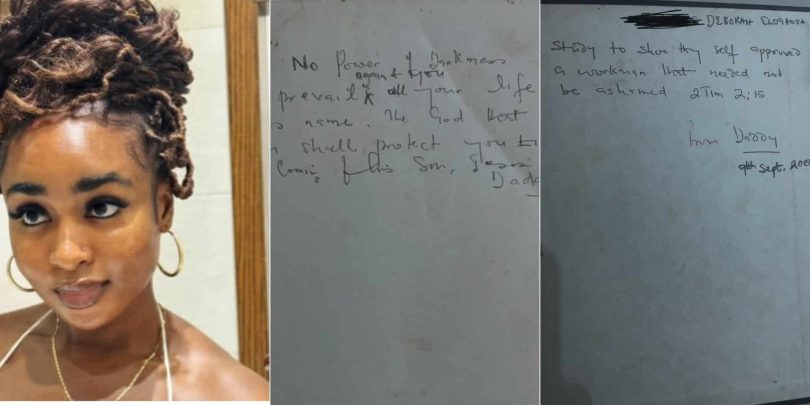 No Power of Darkness
against you
prevail all your life
name. The God that
shall protect you
Coming of his Son, Jesus
Dadd
DEBORAH ELOGHOSA
Study to show thy self approved
a workman that needed not
be ashamed 2 Tim 2:15
from Daddy
9th Sept. 200